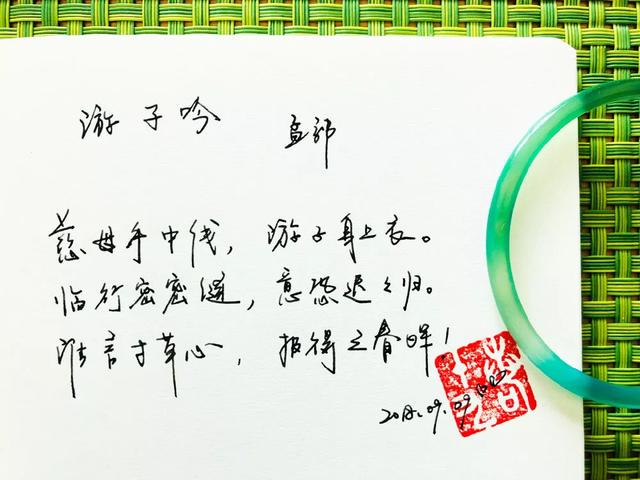 游子吟 孟郊
慈母手中线，游子身上衣。
临行密密缝，意恐迟々归。
谁言寸草心，报得三春晖！
2018.09.09